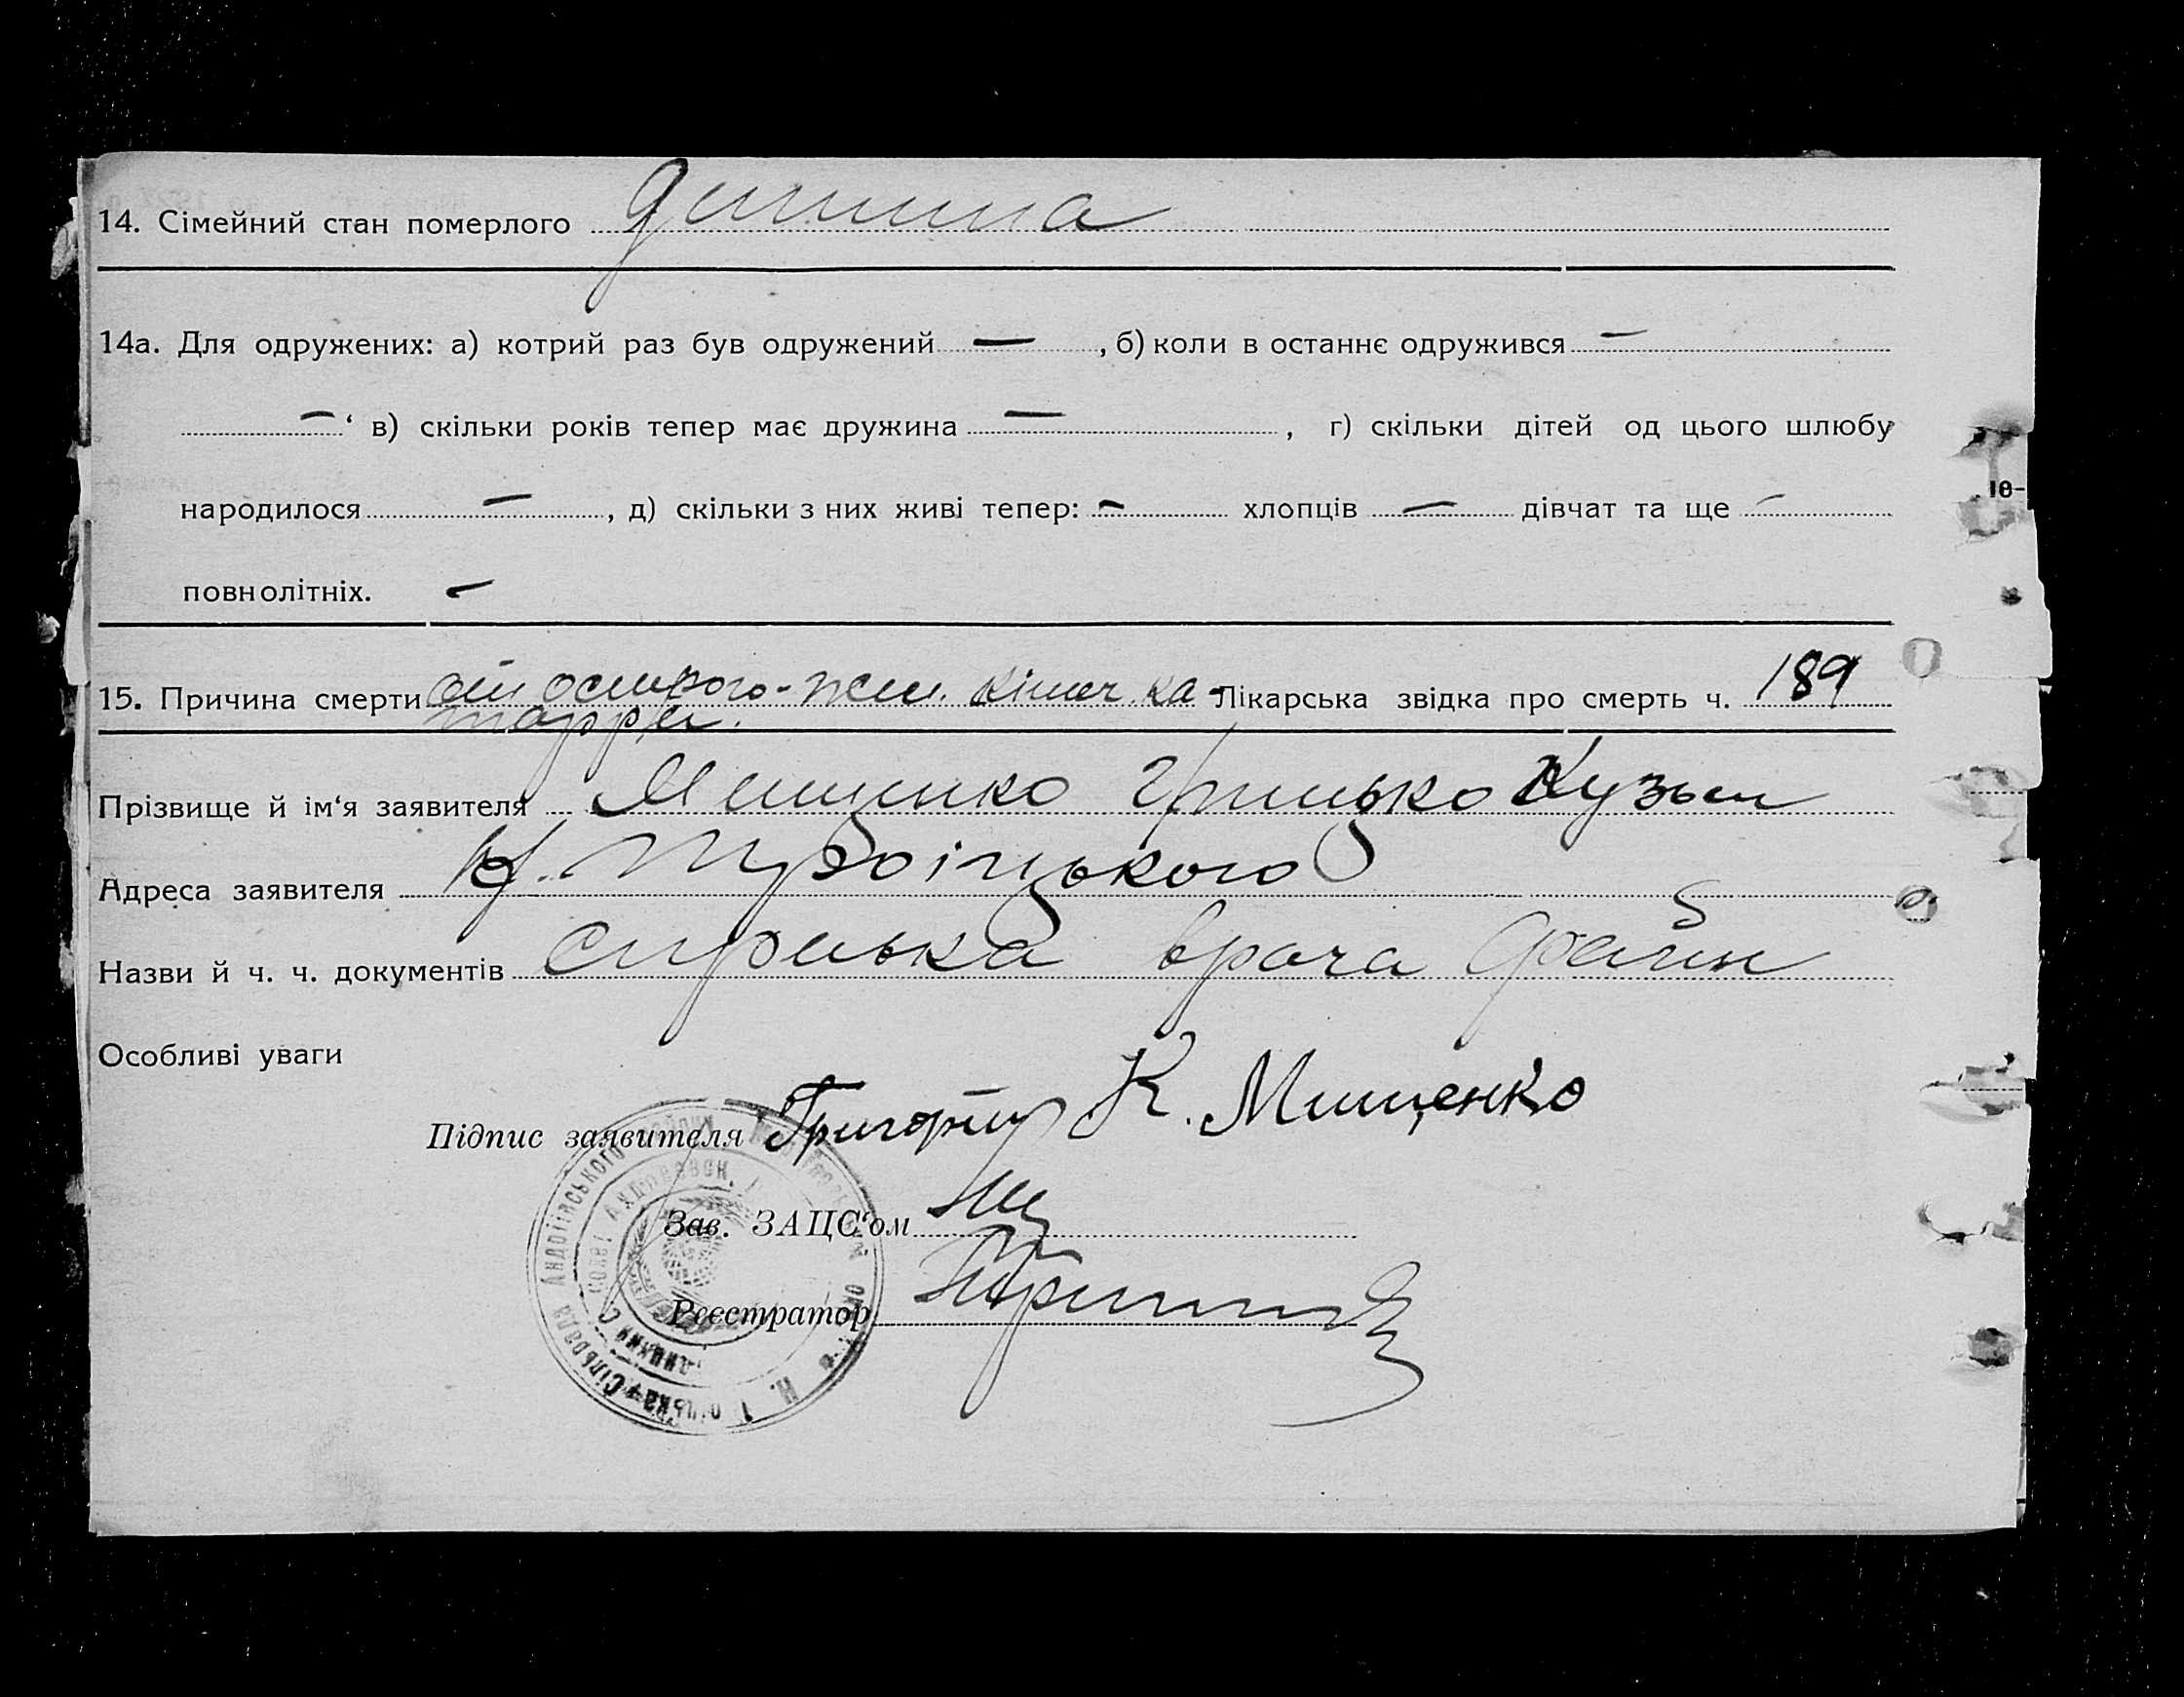 14. Сімейний стан померлого дитина
14а. Для одружених: а) котрий раз був одружений — , б) коли в останнє одружився —
—‘ в) скільки років тепер має дружина — , г) скільки дітей од цього шлюбу
народилося — , д) скільки з них живі тепер: — хлопців — дівчат та ще —
повнолітніх. —
15. Причина смерти от острого-жел. кишеч. ка- Лікарська звідка про смерть ч. 189
тарра.
Прізвище й ім‘я заявителя Мищенко Грицько Кузьм
Адреса заявителя х. Троіцького
Назви й ч. ч. документів справка врача Файн
Особливі уваги
Підпис заявителя Григорий К. Мищенко
Зав. ЗАЦС‘ом
Реєстратор